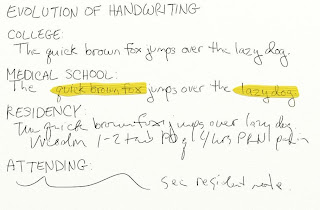 EVOLUTION OF HANDWRITING
COLLEGE:
The quick brown fox jumps over the lazy dog.
MEDICAL SCHOOL:
The quick brown fox jumps over the lazy dog.
RESIDENCY:
The quick brown fox jumps over lazy dog
Vicodin 1-2 tabs PO q 4hrs PRN pain
ATTENDING:
see resident note.